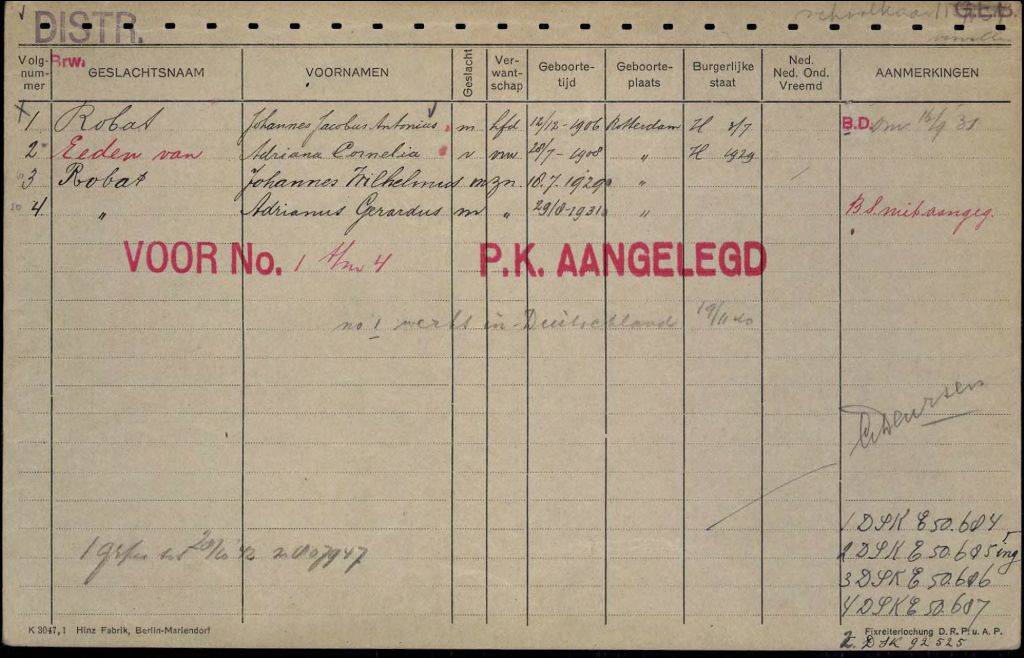 DISTR.
schoolkaart GEB.
Volgnummer Brw. GESLACHTSNAAM VOORNAMEN Geslacht Verwantschap Geboortetijd Geboorteplaats Burgerlijke staat Ned. Ned. Ond. Vreemd AANMERKINGEN
1 Robat Johannes Jacobus Antonius m hfd 12/12-1906 Rotterdam H 3/7 B.D. 16/9 31
2 Eeden van Adriana Cornelia v vrw 28/7-1908 " H 1929
3 Robat Johannes Wilhelmus m zn. 18.7.1929 "
4. " Adrianus Gerardus m " 29/8-1931 " B.S. mit aangeg.
VOOR No. 1 t/m 4 P.K. AANGELEGD
no 1 werkt in Duitschland 19/11 40
1 DSK E 50.684
2 DSK E 50.685 ing
3 DSK E 50.686
4 DSK E 50.687
K 3047,1 Hinz Fabrik, Berlin-Mariendorf
Fixreiterlochung D. R. P. u. A. P.
2. DSK 92525